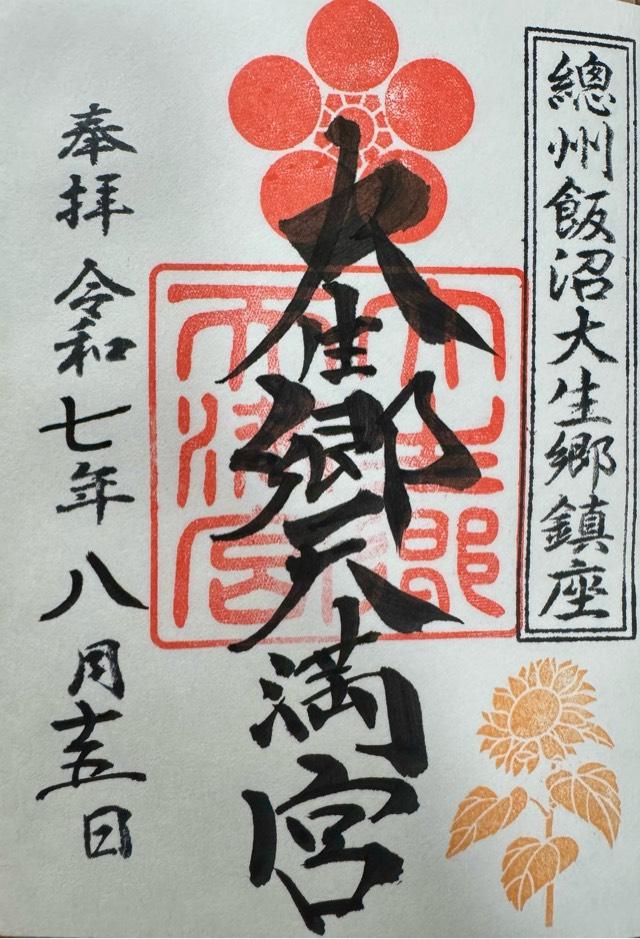 總州飯沼大生郷鎮座
大生郷天満宮
奉拝 令和七年八月十五日